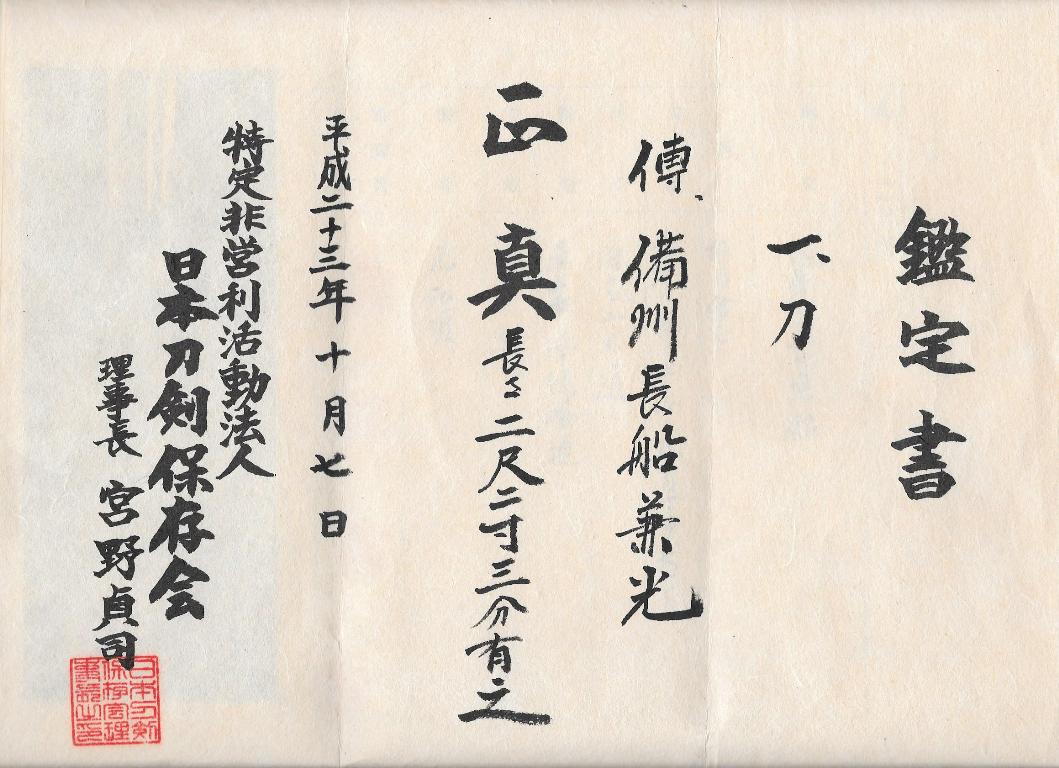 鑑定書
一、刀
傳、備州長船兼光
正真
長さ二尺二寸三分有之
平成二十三年十月七日
特定非営利活動法人
日本刀剣保存会
理事長 宮野貞司